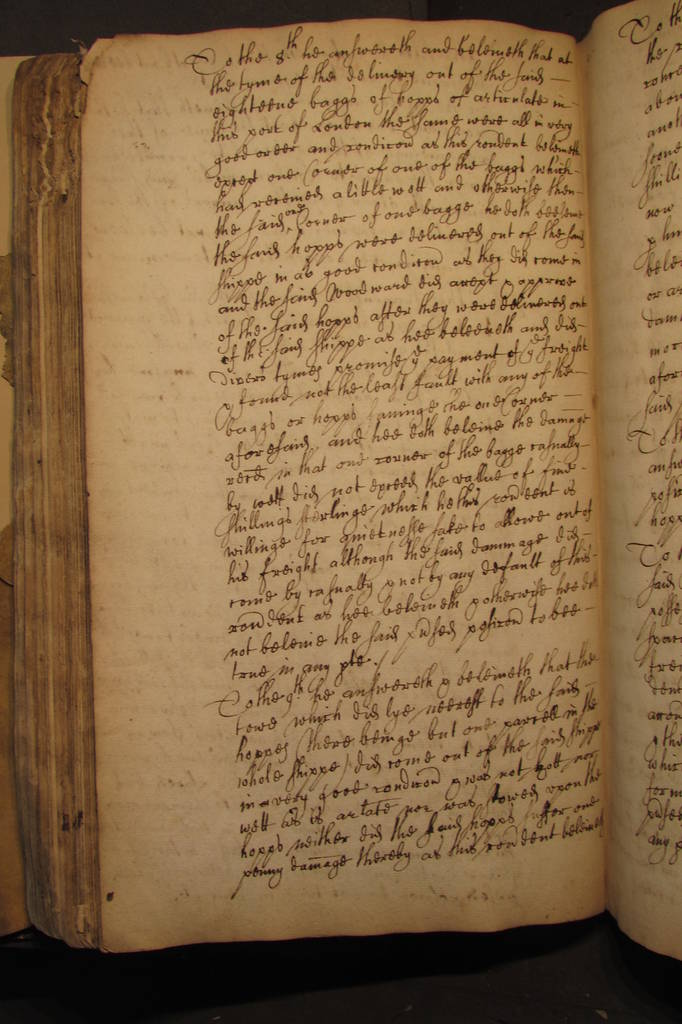 To the 8th he answereth and beleiveth that at
the tyme of the delivery out of the said
eighteene baggs of hopps of articulate in
this port of London the same were all in very
good order and condicion as this rondent beleiveth
except one Corner of one of the baggs which
had received a little wett and otherwise then
the said one Corner of one bagge he doth beleeve
the said hopps were delivered out of the said
shippe in as good condicion as they did come in
and the said Woodward did accept & approve
of the said hopps after they were delivered out
of the said shippe as hee beleeveth and did
divers tymes promise ye payment of ye freight
& found not the least fault with any of the
baggs or hopps savinge the one Corner
aforesaid, and hee doth beleive the damage
recd in that one corner of the bagge casually
by wett did not exceed the vallue of five
shillings sterlinge which hee this rondent is
willinge for quietnesse sake to allowe out of
his freight although the said dammage did
come by casualty & not by any default of this
rondent as hee beleiveth & otherwise hee doth
not beleive the said prsed posicon to bee
true in any pte./
To the 9th he answereth & beleiveth that the
towe which did lye neerest to the said
hoppes (there beinge but one parcell in the
whole shippe) did come out of the said shippe
in a very good condicion & was not wett nor
wett as is arlate nor was stowed upon the
hopps neither did the said hopps suffer one
penny dammage thereby as this rondent beleiveth